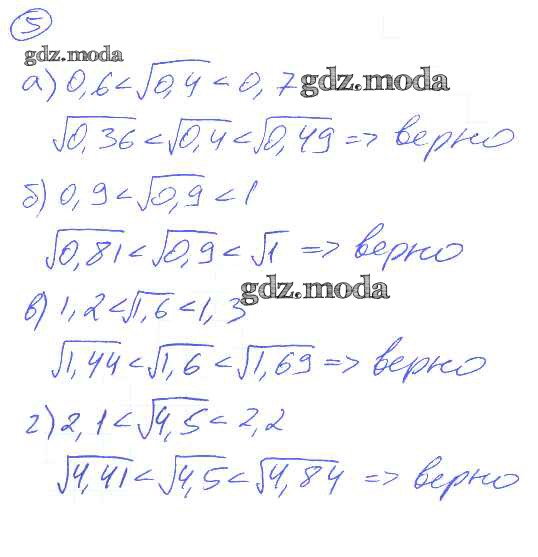 5
gdz.moda
а) 0,6 < √0,4 < 0,7 gdz.moda
√0,36 < √0,4 < √0,49 => верно
б) 0,9 < √0,9 < 1
√0,81 < √0,9 < √1 => верно
gdz.moda
в) 1,2 < √1,6 < 1,3
√1,44 < √1,6 < √1,69 => верно
г) 2,1 < √4,5 < 2,2
√4,41 < √4,5 < √4,84 => верно